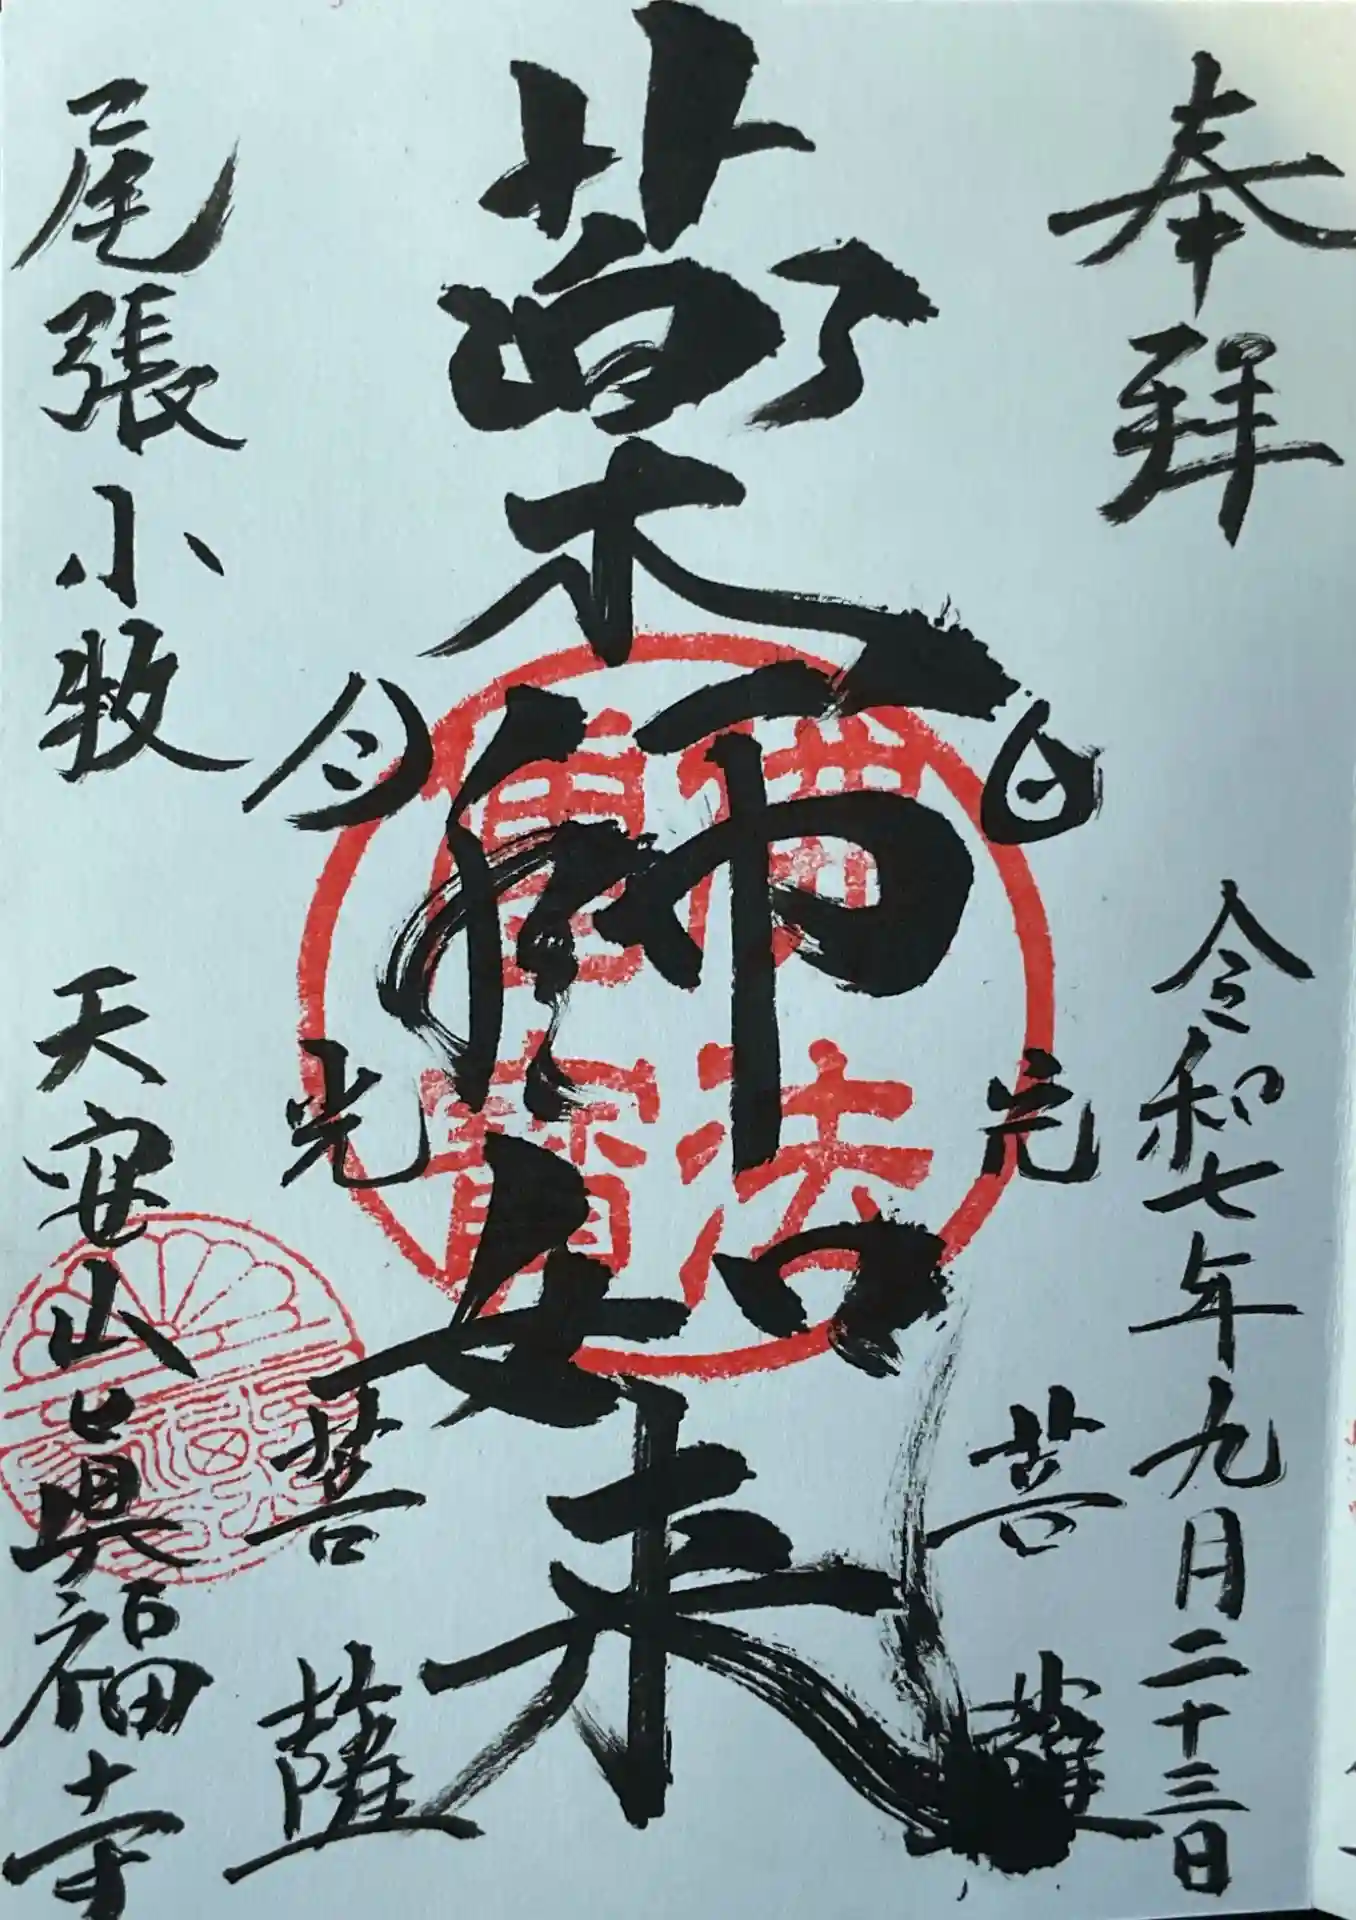 奉拜
令和七年九月二十三日
日光菩薩
薬師如来
月光菩薩
尾張小牧 天安山眞福寺
佛法
僧寳